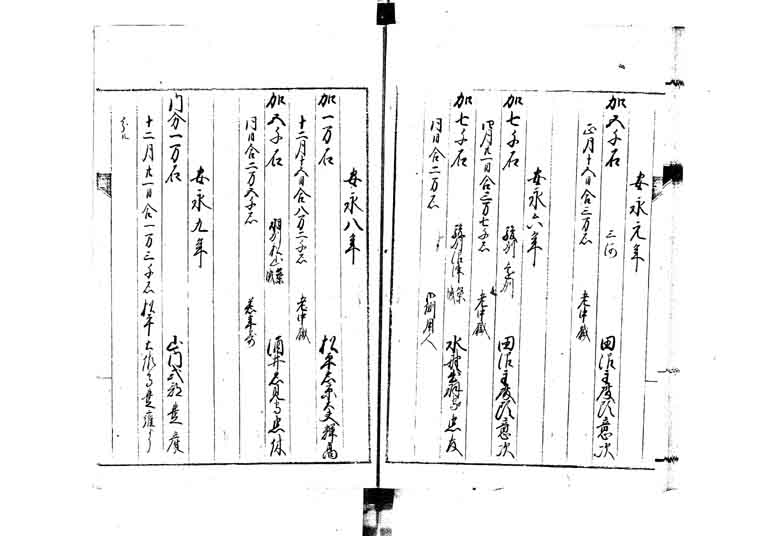 安永元年
加五千石 三河 田沼主殿頭意次
正月十五日合三万石 老中職
安永六年
加七千石 駿州 遠州 田沼主殿頭意次
四月廿一日合三万七千石 老中職
加七千石 駿州沼津 築城 水野出羽守忠友
同日合二万石 御側用人
安永八年
加一万石 松平右京大夫輝高
十二月十五日合八万二千石 老中職
加五千石 羽州松山 築城 酒井石見守忠休
同日合二万五千石 若年寄
安永九年
内分一万石 山門式部豊廣
十二月廿一日合一万三千石 松平大隅守